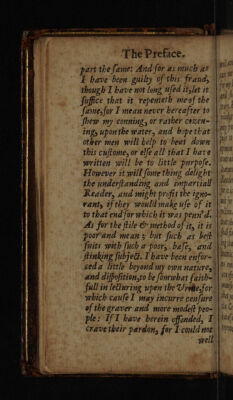 The Preface.
part the same: And for as much as
I have been guilty of this fraud,
though I have not long used it, let it
suffice that it repenteth me of the
same, for I mean never hereafter to
shew my conning, or rather cozen-
ing, upon the water, and hope that
other men will help to beat down
this custome, or else all that I have
written will be to little purpose.
However it will some thing delight
the understanding and impartiall
Reader, and might profit the igno-
rant, if they would make use of it
to that end for which it was penn'd.
As for the stile & method of it, it is
poor and mean; but such as best
suits with such a poor, base, and
stinking subject. I have been enfor-
sed a little beyond my own nature,
and disposition, to be somwhat faith-
full in lecturing upon the Vrine, for
which cause I may incurre censure
of the graver and more modest peo-
ple: If I have herein offended, I
crave their pardon, for I could not
well